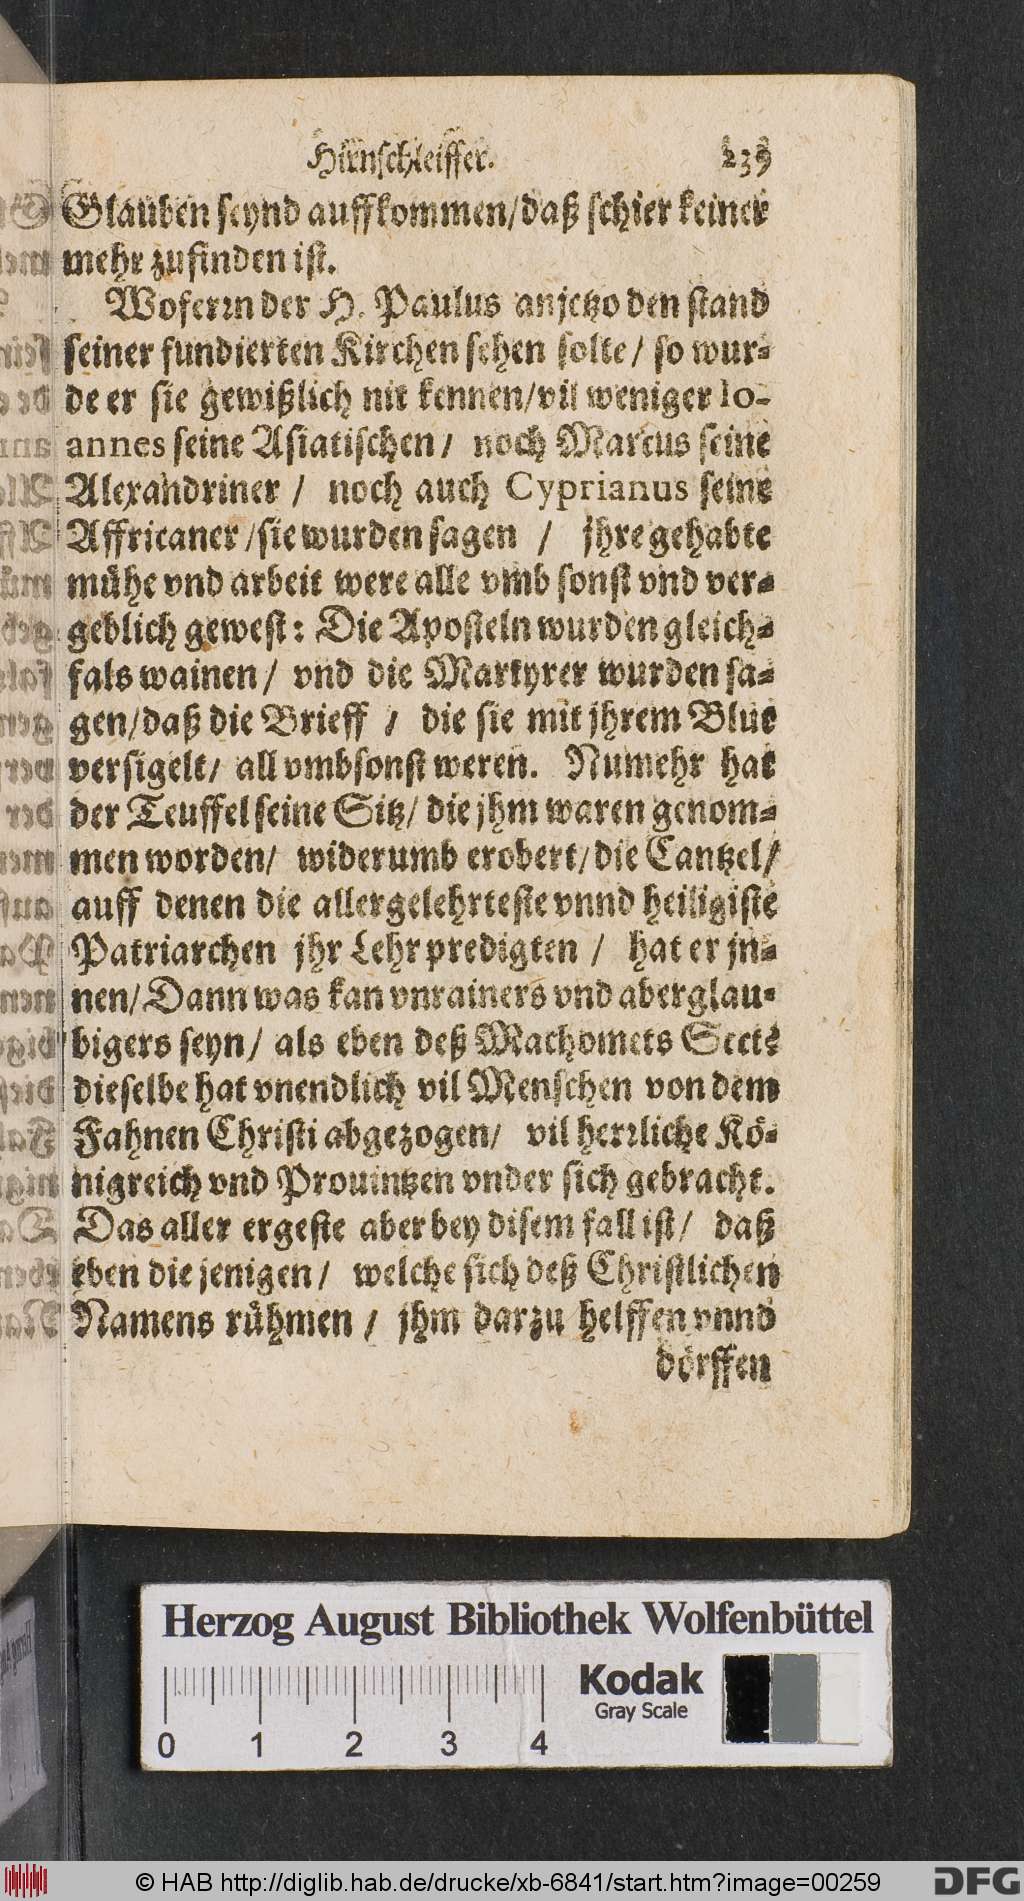 Hirnschleiffer. 239
Glauben seynd auffkommen/daß schier keiner
mehr zufinden ist.
Wofern der H. Paulus anjetzo den stand
seiner fundierten Kirchen sehen solte/ so wur-
de er sie gewißlich nit kennen/vil weniger Io-
annes seine Asiatischen/ noch Marcus seine
Alexandriner / noch auch Cyprianus seine
Affricaner/sie wurden sagen / jhre gehabte
mühe vnd arbeit were alle vmb sonst vnd ver-
geblich gewest: Die Aposteln wurden gleich-
fals wainen/ vnd die Martyrer wurden sa-
gen/daß die Brieff / die sie mit jhrem Blut
versigelt/ all vmbsonst weren. Numehr hat
der Teuffel seine Sitz/ die jhm waren genom-
men worden/ widerumb erobert/die Cantzel/
auff denen die allergelehrteste vnnd heiligiste
Patriarchen jhr Lehr predigten / hat er jn-
nen/ Dann was kan vnrainers vnd aberglau-
bigers seyn/ als eben deß Machomets Sect?
dieselbe hat vnendlich vil Menschen von dem
Fahnen Christi abgezogen/ vil herrliche Kö-
nigreich vnd Prouintzen vnder sich gebracht.
Das aller ergeste aber bey disem fall ist/ daß
eben die jenigen/ welche sich deß Christlichen
Namens rühmen / jhm darzu helffen vnnd
dörffen
Herzog August Bibliothek Wolfenbüttel
Kodak
Gray Scale
0 1 2 3 4
© HAB http://diglib.hab.de/drucke/xb-6841/start.htm?image=00259
DFG